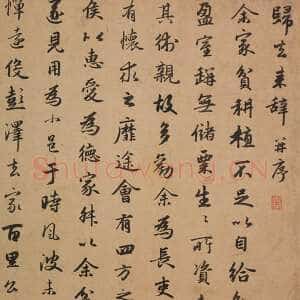 歸去来辭并序
余家貧耕植不足以自給
盈室缾無儲粟生〻所資
其術親故多勸余為長吏
有懷求之靡途會有四方之
侯以惠愛為德家叔以余
遂見用為小邑于時風波未
憚遠役彭澤去家百里公